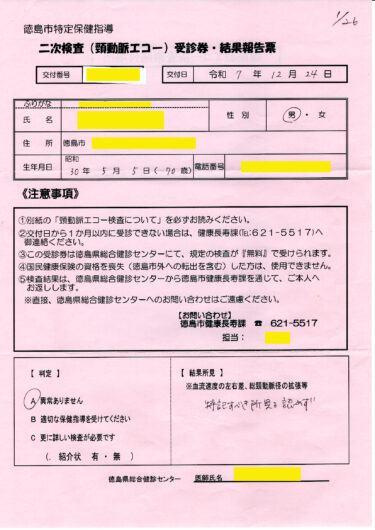 1/26
徳島市特定保健指導
二次検査（頸動脈エコー）受診券・結果報告票
交付番号
交付日 令和 7 年 12 月 24 日
ふりがな
氏 名
性 別 男・女
住 所 徳島市
生年月日 昭和 30 年 5 月 5 日（ 70 歳）
電話番号
《注意事項》
①別紙の「頸動脈エコー検査について」を必ずお読みください。
②交付日から１か月以内に受診できない場合は、健康長寿課(℡621-5517)へ
御連絡ください。
③この受診券は徳島県総合健診センターにて、規定の検査が『無料』で受けられます。
④国民健康保険の資格を喪失（徳島市外への転出を含む）した方は、使用できません。
⑤検査結果は、徳島県総合健診センターから徳島市健康長寿課を通じて、ご本人へ
お返しします。
※直接、徳島県総合健診センターへのお問い合わせはご遠慮ください。
【お問い合わせ】
徳島市健康長寿課 ☎ 621-5517
担当：
【 判定 】
A 異常ありません
B 適切な保健指導を受けてください
C 更に詳しい検査が必要です
（. 紹介状 有 ・ 無 ）
【 結果所見 】
※血流速度の左右差、総頸動脈径の拡張等
特記すべき所見を認めず
徳島県総合健診センター 医師氏名